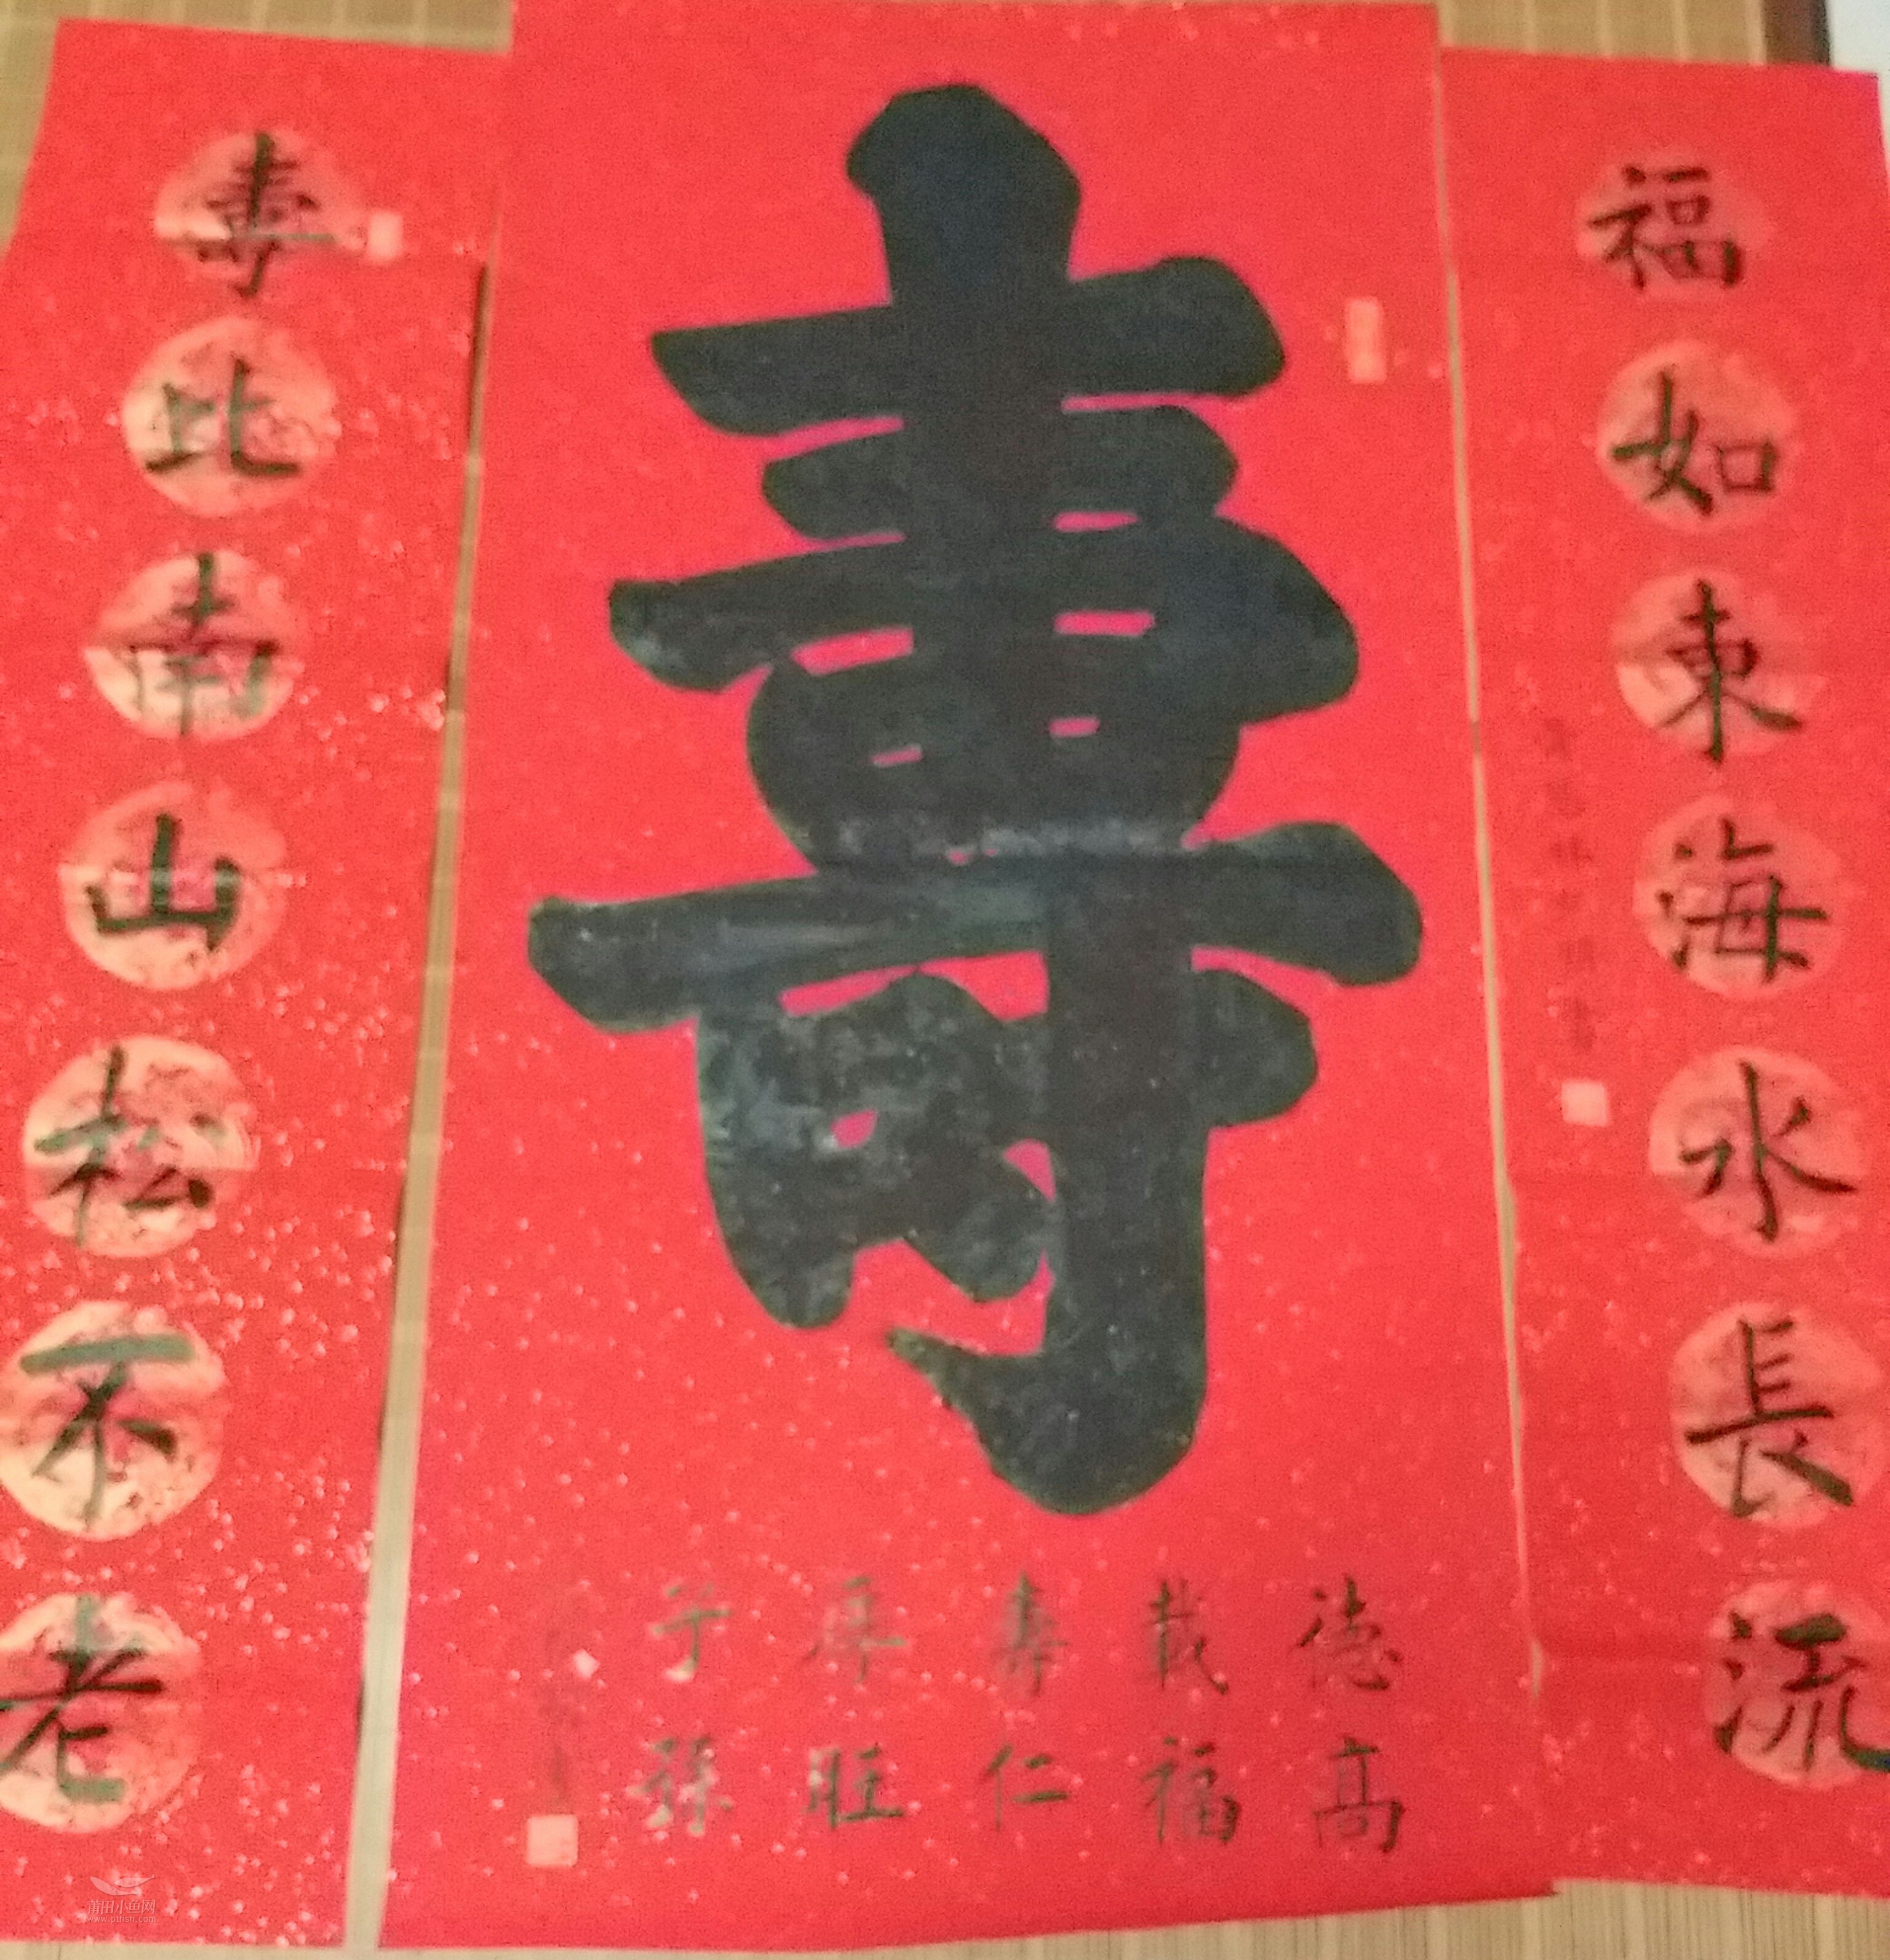 福如東海水長流
壽
德高
載福
壽仁
厚旺
子孫
壽比南山松不老
莆田小鱼网
www.ptfish.com